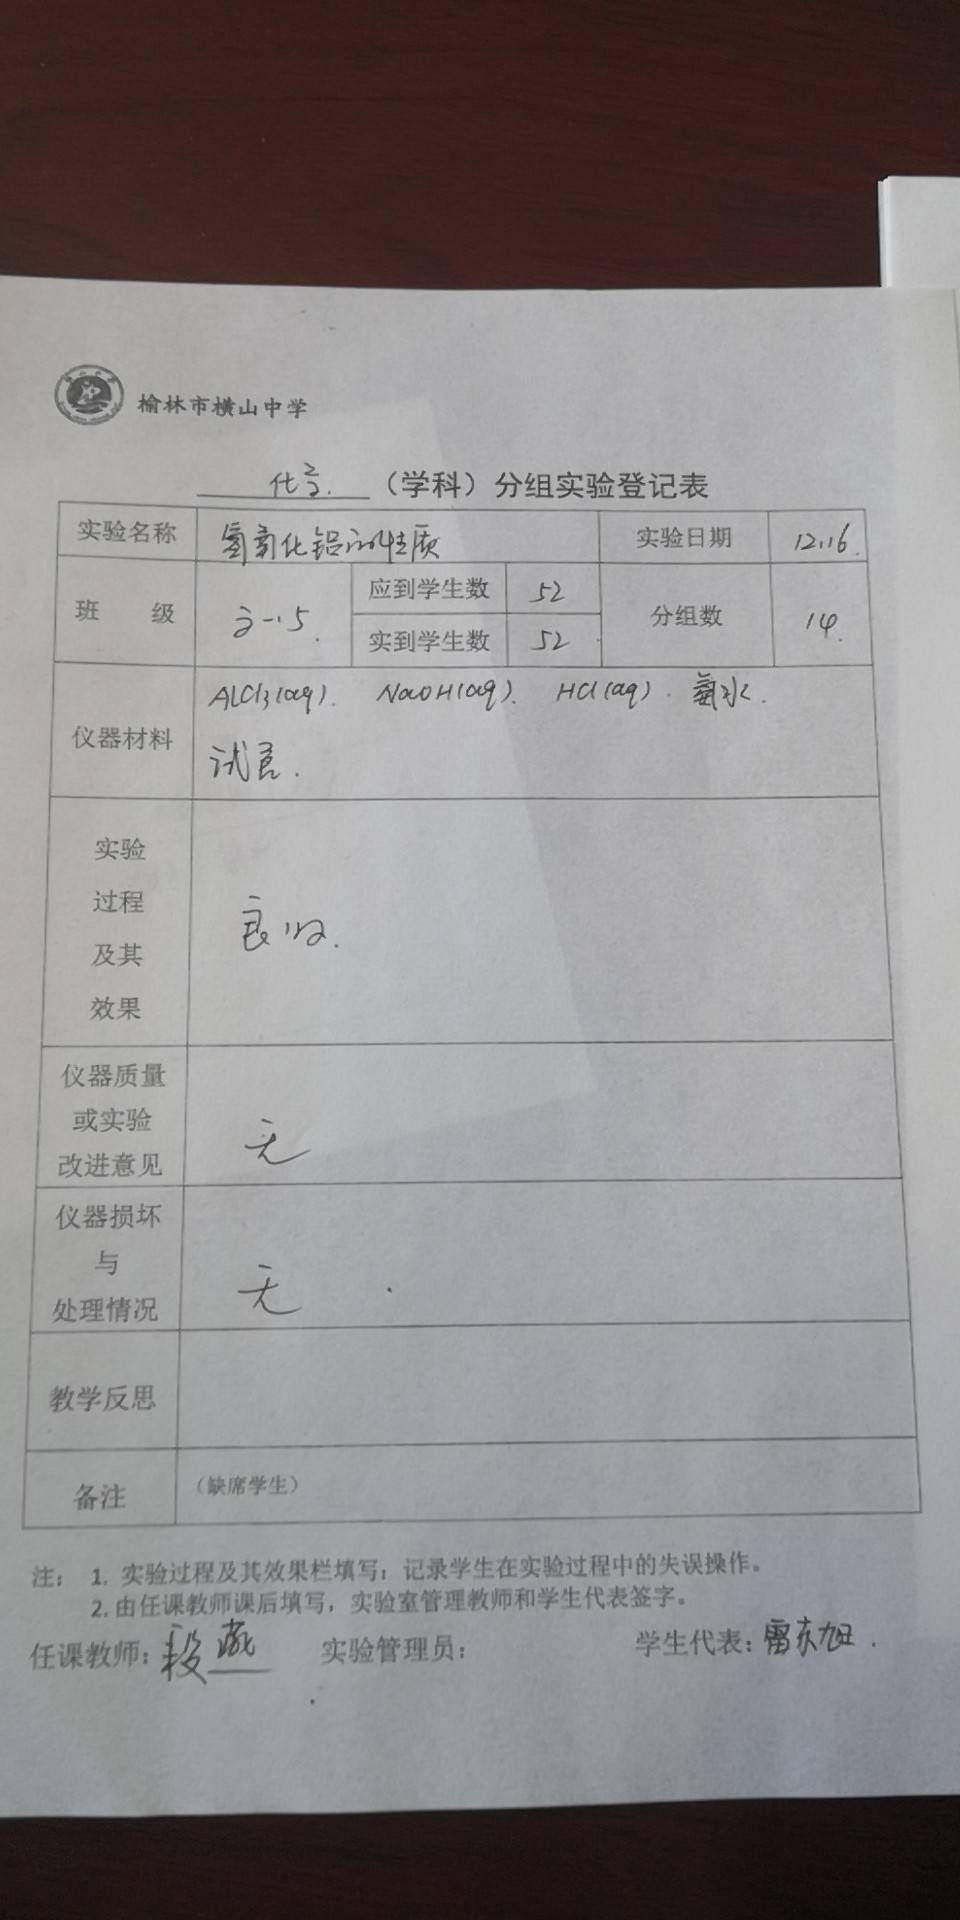 榆林市横山中学
化学.（学科）分组实验登记表
实验名称 氢氧化铝的性质 实验日期 12.16.
班 级 应到学生数 52 分组数 14.
实到学生数 52
仪器材料 AlCl3(aq). NaOH(aq). HCl(aq). 氨水.
试管.
实验
过程
及其
效果
良好.
仪器质量
或实验
改进意见
无
仪器损坏
与
处理情况
无
教学反思
备注 （缺席学生）
注： 1. 实验过程及其效果栏填写：记录学生在实验过程中的失误操作。
2. 由任课教师课后填写，实验室管理教师和学生代表签字。
任课教师：段 实验管理员： 学生代表：雷东旭.